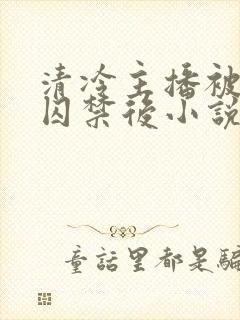 清冷主播被
囚禁後小說
童話里都是騙